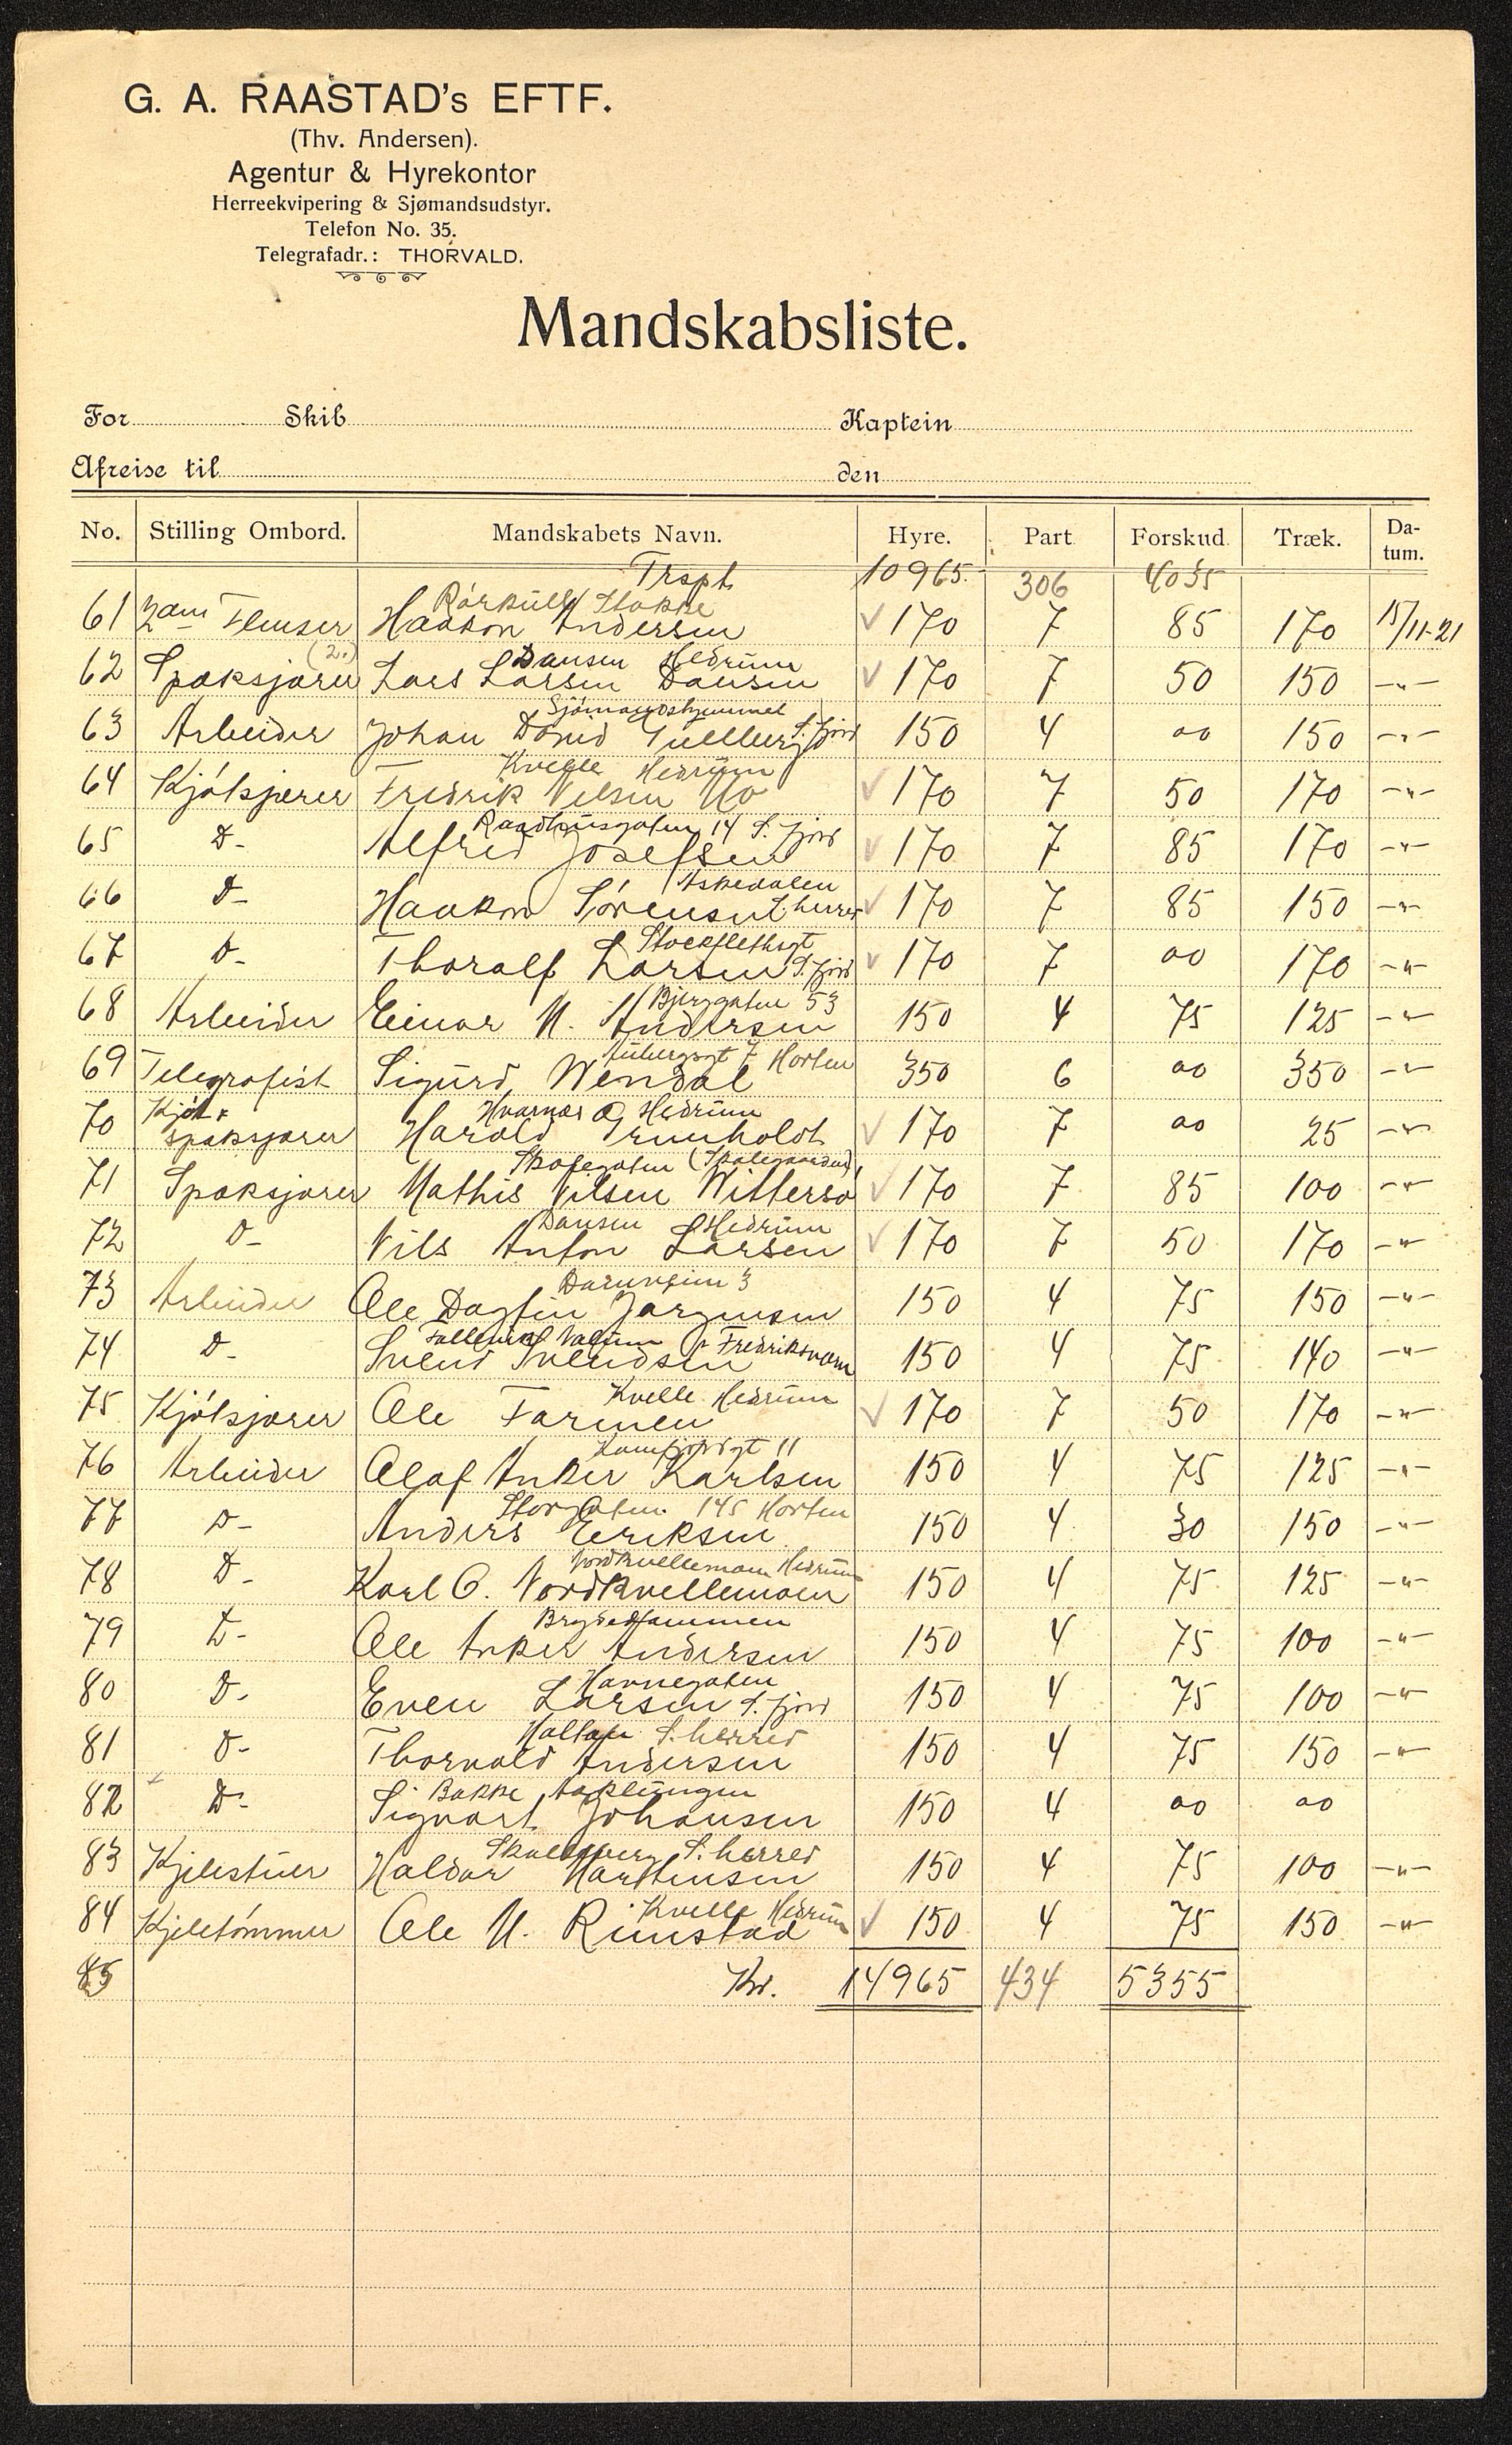 G. A. RAASTAD's EFTF.
(Thv. Andersen).
Agentur & Hyrekontor
Herreekvipering & Sjømandsudstyr.
Telefon No. 35.
Telegrafadr.: THORVALD.
Mandskabsliste.
For Skib Kaptein
Afreise til den
No. Stilling Ombord. Mandskabets Navn. Hyre. Part Forskud Træk. Da-tum.
Trspt. 10965. 306 4035
Stokke
61 2den Flenser Haakon Andersen 170 7 85 170 15/11-21
(2.) Dansen Hedrum
62 Spæksjærer Lars Larsen Dansen 170 7 50 150 -"-
Sjømandshjemmet
63 Arbeider Johan David Gullberg S. fjord 150 4 oo 150 -"-
Kvelle Hedrum
64 Kjötsjærer Fredrik Nilsen Mo 170 7 50 170 -"-
Raadhusgaten 14 S. fjord
65 D- Alfred Josefsen 170 7 85 170 -"-
66 D- Haakon Sörensen S. herred 170 7 85 150 -"-
Stockflethsgt
67 D- Thoralf Larsen S. fjord 170 7 oo 170 -"-
Bjerggaten 53
68 Arbeider Einar M. Andersen 150 4 75 125 -"-
7 Horten
69 Telegrafist Sigurd Wendal 350 6 oo 350 -"-
Hvarnes Hedrum
70 Kjöt & spæksjærer Harald Grunholdt 170 7 oo 25 -"-
71 Spæksjærer Mathis Nilsen Wittersö 170 7 85 100 -"-
Dansen Hedrum
72 D- Nils Anton Larsen 170 7 50 170 -"-
3
73 Arbeider Ole Dagfin Jørgensen 150 4 75 150 -"-
Fredriksværn
74 D- Svend Svendsen 150 4 75 140 -"-
Kvelle Hedrum
75 Kjötsjærer Ole Farmen 170 7 50 170 -"-
11
76 Arbeider Olaf Anker Karlsen 150 4 75 125 -"-
Storgaten 145 Horten
77 D- Anders Eriksen 150 4 30 150 -"-
Nordkvellemoen Hedrum
78 D- Karl O. Nordkvellemoen 150 4 75 125 -"-
79 D- Ole Anker Andersen 150 4 75 100 -"-
Havnegaten
80 D- Even Larsen S. fjord 150 4 75 100 -"-
S. herred
81 D- Thorvald Andersen 150 4 75 150 -"-
Bakke
82 D- Sigvart Johansen 150 4 oo oo
S. herred
83 Kjelestuer Haldor Marthinsen 150 4 75 100 -"-
Kvelle Hedrum
84 Kjeletömmer Ole M. Rimstad 150 4 75 150 -"-
85 Kr. 14965 434 5355